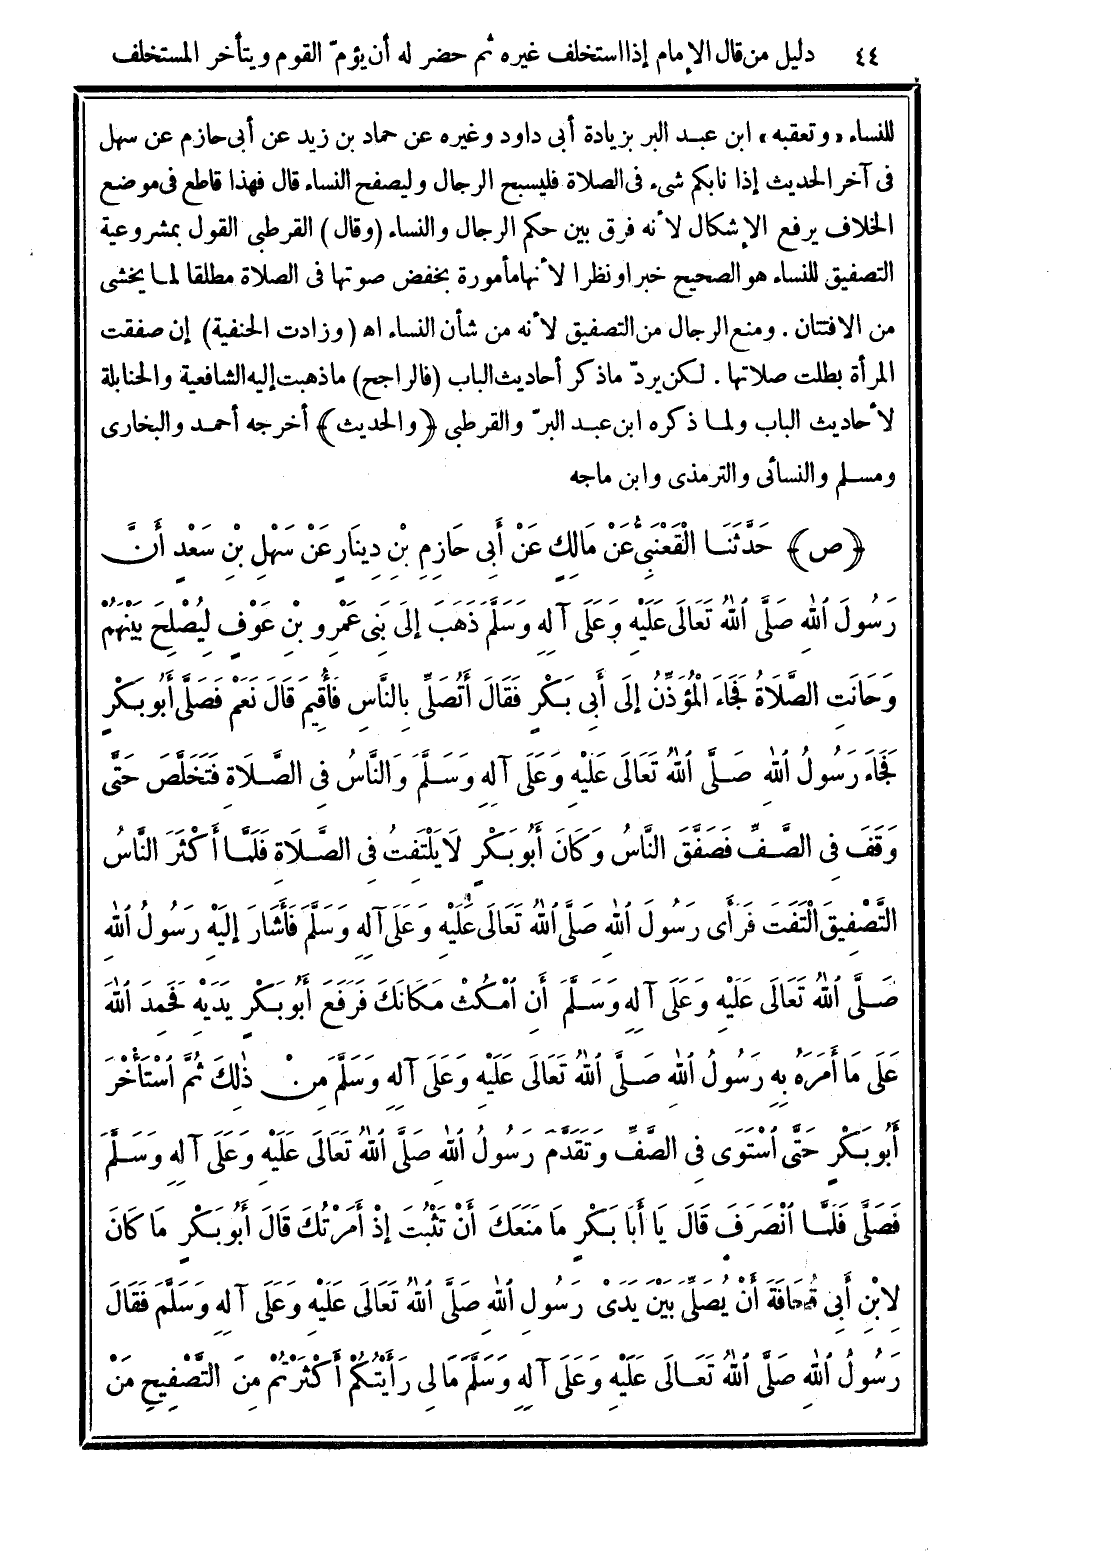 ٤٤ دليل من قال الإمام إذا استخلف غيره ثم حضر له أن يؤمّ القوم ويتأخر المستخلف
للنساء «وتعقبه» ابن عبد البر بزيادة أبى داود وغيره عن حماد بن زيد عن أبى حازم عن سهل
فى آخر الحديث إذا نابكم شىء فى الصلاة فليسبح الرجال وليصفح النساء قال فهذا قاطع فى موضع
الخلاف يرفع الإشكال لأنه فرق بين حكم الرجال والنساء (وقال) القرطبى القول بمشروعية
التصفيق للنساء هو الصحيح خبرا ونظرا لأنها مأمورة بخفض صوتها فى الصلاة مطلقا لما يخشى
من الافتتان . ومنع الرجال من التصفيق لأنه من شأن النساء اه (وزادت الحنفية) إن صفقت
المرأة بطلت صلاتها . لكن يردّ ماذكر أحاديث الباب (فالراجح) ماذهبت إليه الشافعية والحنابلة
لأحاديث الباب ولما ذكره ابن عبد البرّ والقرطبى ﴿والحديث﴾ أخرجه أحمد والبخارى
ومسلم والنسائى والترمذى وابن ماجه
﴿ص﴾ حَدَّثَنَا الْقَعْنَبِىُّ عَنْ مَالِكٍ عَنْ أَبِى حَازِمِ بْنِ دِينَارٍ عَنْ سَهْلِ بْنِ سَعْدٍ أَنَّ
رَسُولَ اللهِ صَلَّى اللهُ تَعَالَى عَلَيْهِ وَعَلَى آلِهِ وَسَلَّمَ ذَهَبَ إِلَى بَنِى عَمْرِو بْنِ عَوْفٍ لِيُصْلِحَ بَيْنَهُمْ
وَحَانَتِ الصَّلَاةُ فَجَاءَ الْمُؤَذِّنُ إِلَى أَبِى بَكْرٍ فَقَالَ أَتُصَلِّى بِالنَّاسِ فَأُقِيمَ قَالَ نَعَمْ فَصَلَّى أَبُو بَكْرٍ
فَجَاءَ رَسُولُ اللهِ صَلَّى اللهُ تَعَالَى عَلَيْهِ وَعَلَى آلِهِ وَسَلَّمَ وَالنَّاسُ فِى الصَّلَاةِ فَتَخَلَّصَ حَتَّى
وَقَفَ فِى الصَّفِّ فَصَفَّقَ النَّاسُ وَكَانَ أَبُو بَكْرٍ لَا يَلْتَفِتُ فِى الصَّلَاةِ فَلَمَّا أَكْثَرَ النَّاسُ
التَّصْفِيقَ الْتَفَتَ فَرَأَى رَسُولَ اللهِ صَلَّى اللهُ تَعَالَى عَلَيْهِ وَعَلَى آلِهِ وَسَلَّمَ فَأَشَارَ إِلَيْهِ رَسُولُ اللهِ
صَلَّى اللهُ تَعَالَى عَلَيْهِ وَعَلَى آلِهِ وَسَلَّمَ أَنِ امْكُثْ مَكَانَكَ فَرَفَعَ أَبُو بَكْرٍ يَدَيْهِ فَحَمِدَ اللهَ
عَلَى مَا أَمَرَهُ بِهِ رَسُولُ اللهِ صَلَّى اللهُ تَعَالَى عَلَيْهِ وَعَلَى آلِهِ وَسَلَّمَ مِنْ ذٰلِكَ ثُمَّ اسْتَأْخَرَ
أَبُو بَكْرٍ حَتَّى اسْتَوَى فِى الصَّفِّ وَتَقَدَّمَ رَسُولُ اللهِ صَلَّى اللهُ تَعَالَى عَلَيْهِ وَعَلَى آلِهِ وَسَلَّمَ
فَصَلَّى فَلَمَّا انْصَرَفَ قَالَ يَا أَبَا بَكْرٍ مَا مَنَعَكَ أَنْ تَثْبُتَ إِذْ أَمَرْتُكَ قَالَ أَبُو بَكْرٍ مَا كَانَ
لِابْنِ أَبِى قُحَافَةَ أَنْ يُصَلِّىَ بَيْنَ يَدَىْ رَسُولِ اللهِ صَلَّى اللهُ تَعَالَى عَلَيْهِ وَعَلَى آلِهِ وَسَلَّمَ فَقَالَ
رَسُولُ اللهِ صَلَّى اللهُ تَعَالَى عَلَيْهِ وَعَلَى آلِهِ وَسَلَّمَ مَالِى رَأَيْتُكُمْ أَكْثَرْتُمْ مِنَ التَّصْفِيحِ مَنْ